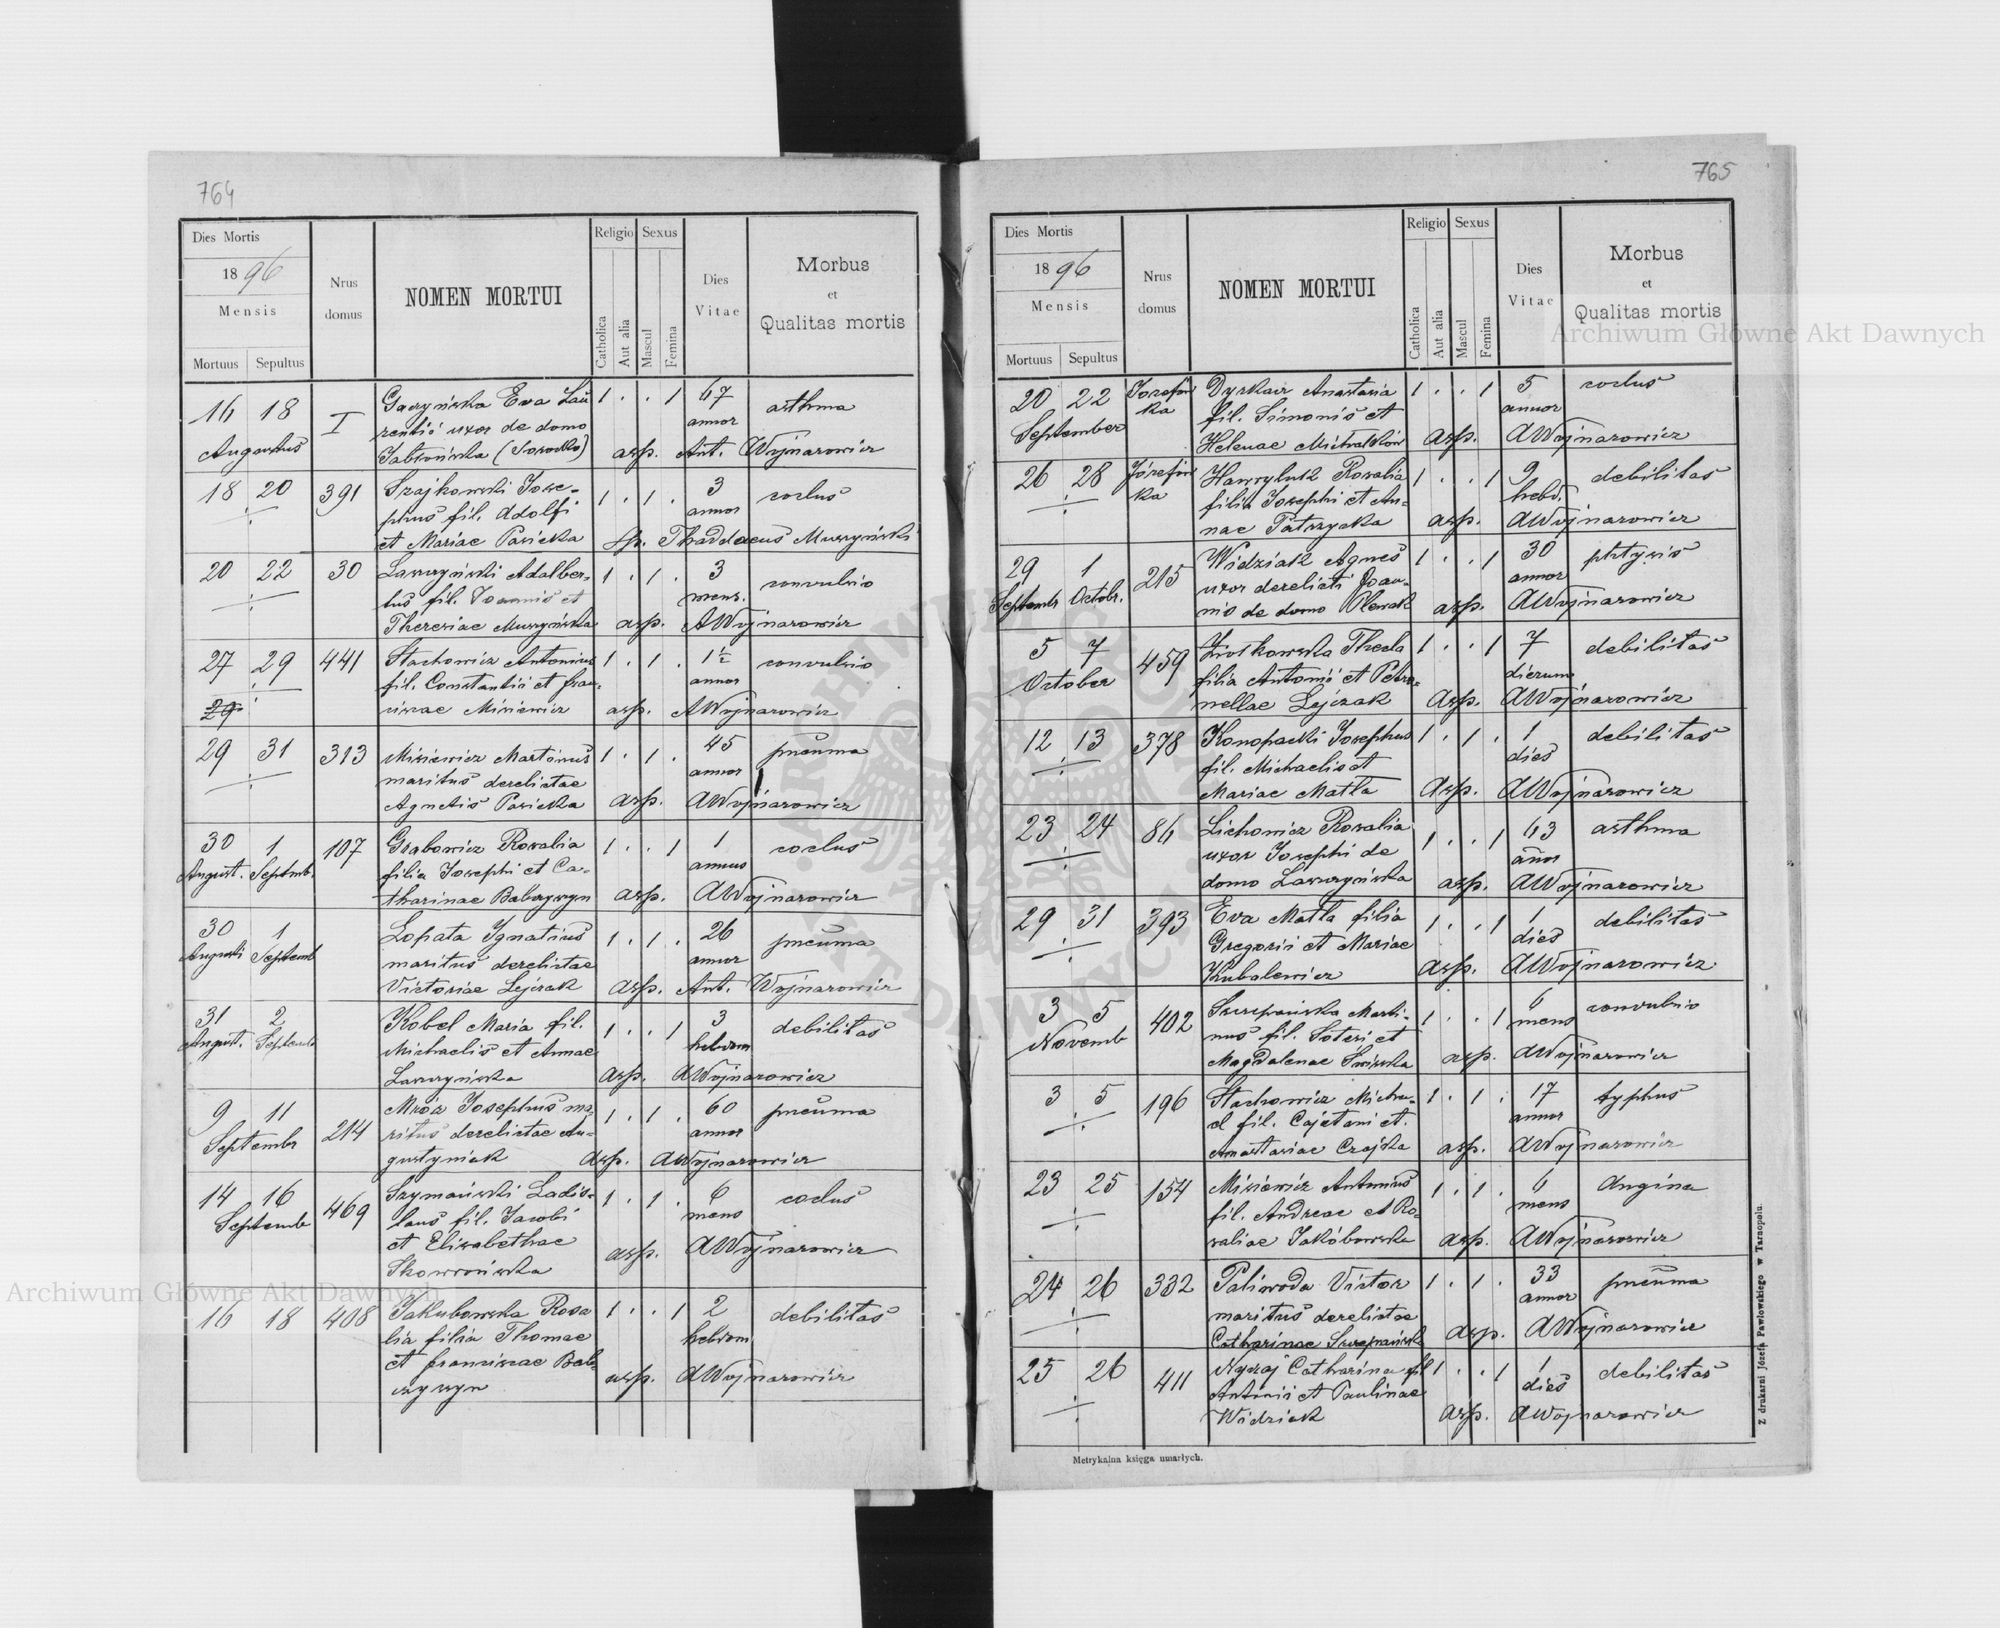 764
Dies Mortis
1896
Mensis
Mortuus Sepultus
Nrus domus
NOMEN MORTUI
Religio Sexus
Catholica Aut alia Mascul Femina
Dies Vitae
Morbus
et
Qualitas mortis
16 18 I Eva Lau 1 . . 1 67 asthma
rentii uxor de domo annor
Augustus Jabłońska asp. Ant. Wojnarowicz
18 20 391 Szajkowski Jose- 1 . 1 . 3 coclus
phus fil. Adolfi annor
et Mariae Pasicka Thaddaeus Muszyński
20 22 30 Lawrzyński Adalber- 1 . 1 . 3 convulsio
tus fil. Joannis et mens.
Theresiae Muszyńska asp. AWojnarowicz
27 29 441 Stachowicz Antonius 1 . 1 . 1½ convulsio
fil. Constantii et Fran- annor
29 ciscae Misiewicz asp. AWojnarowicz
29 31 313 Misiewicz Martinus 1 . 1 . 45 pneuma
maritus derelictae annor
Agnetis Pasicka asp. AWojnarowicz
30 1 107 Grabowicz Rosalia 1 . . 1 1 coclus
August. Septmb. filia Josephi et Ca- annus
tharinae asp. AWojnarowicz
30 1 Łopata Ignatius 1 . 1 . 26 pneuma
Augusti Septemb maritus derelictae annor
Victoriae Lejczak asp. Ant. Wojnarowicz
31 2 Kobel Maria fil. 1 . . 1 3 debilitas
August. Michaelis et Annae hebdom
Lawrzyńska asp. AWojnarowicz
9 11 214 Mróz Josephus ma- 1 . 1 . 60 pneuma
Septembr ritus derelictae Au- annor
gustyniak asp. AWojnarowicz
14 16 469 Szymański Ladis- 1 . 1 . 6 coclus
Septemb laus fil. Jacobi mens
et Elisabethae asp. AWojnarowicz
Skowrońska
16 18 408 Jakubowska Rosa 1 . . 1 2 debilitas
lia filia Thomae hebdom
et Franciscae asp. AWojnarowicz
765
Dies Mortis
1896
Mensis
Mortuus Sepultus
Nrus domus
NOMEN MORTUI
Religio Sexus
Catholica Aut alia Mascul Femina
Dies Vitae
Morbus
et
Qualitas mortis
20 22 Anastasia 1 . . 1 5 coclus
ka fil. Simonis et annor
September Helenae Michałków asp. AWojnarowicz
26 28 Józefów Hawryluk Rosalia 1 . . 1 9 debilitas
ka filia Josephi et An- hebd.
nae asp. AWojnarowicz
29 1 215 Widziak Agnes 1 . . 1 30 phtysis
Septembr Octobr. uxor derelicti Joan- annor
nis de domo asp. AWojnarowicz
5 7 459 Thecla 1 . . 1 7 debilitas
October filia Antonii et Petro- dierum
nellae Lejczak asp. AWojnarowicz
12 13 378 Konopacki Josephus 1 . 1 . 1 debilitas
fil. Michaelis et dies
Mariae Matla asp. AWojnarowicz
23 24 86 Lichowicz Rosalia 1 . . 1 63 asthma
uxor Josephi de annor
domo Lawrzyńska asp. AWojnarowicz
29 31 393 Eva Matla filia 1 . . 1 1 debilitas
Gregorii et Mariae dies
Kubalewicz asp. AWojnarowicz
3 5 402 Szczepańska Marti- 1 . . 1 6 convulsio
Novemb nus fil. Soteri et mens
Magdalenae asp. AWojnarowicz
3 5 196 Stachowicz Micha- 1 . 1 . 17 typhus
el fil. Cajetani et annor
Anastasiae Czajka asp. AWojnarowicz
23 25 154 Misiewicz Antonius 1 . 1 . 6 Angina
fil. Andreae et Ro- mens
saliae Jakóbowska asp. AWojnarowicz
24 26 332 Paliwoda Victor 1 . 1 . 33 pneuma
maritus derelictae annor
Catharinae Szczepańska asp. AWojnarowicz
25 26 411 Catharina fil 1 . . 1 1 debilitas
Antonii et Paulinae dies
Widziak asp. AWojnarowicz
Metrykalna księga umarłych.
Z drukarni Józefa Pawłowskiego w Tarnopolu.
Archiwum Główne Akt Dawnych
Archiwum Główne Akt Dawnych